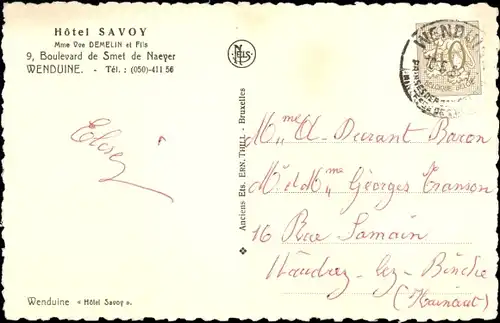 Hôtel SAVOY
Mme Vve DEMELIN et Fils
9, Boulevard de Smet de Naeyer
WENDUINE. - Tél. : (050)-411 56
NELS
WENDUINE
Anciens Ets. ERN. THILL - Bruxelles
Mme A. Durant Baron
M. et Mme Georges Transon
16 Rue Samain
Waudrez-lez-Binche
(Hainaut)
Wenduine « Hôtel Savoy ».